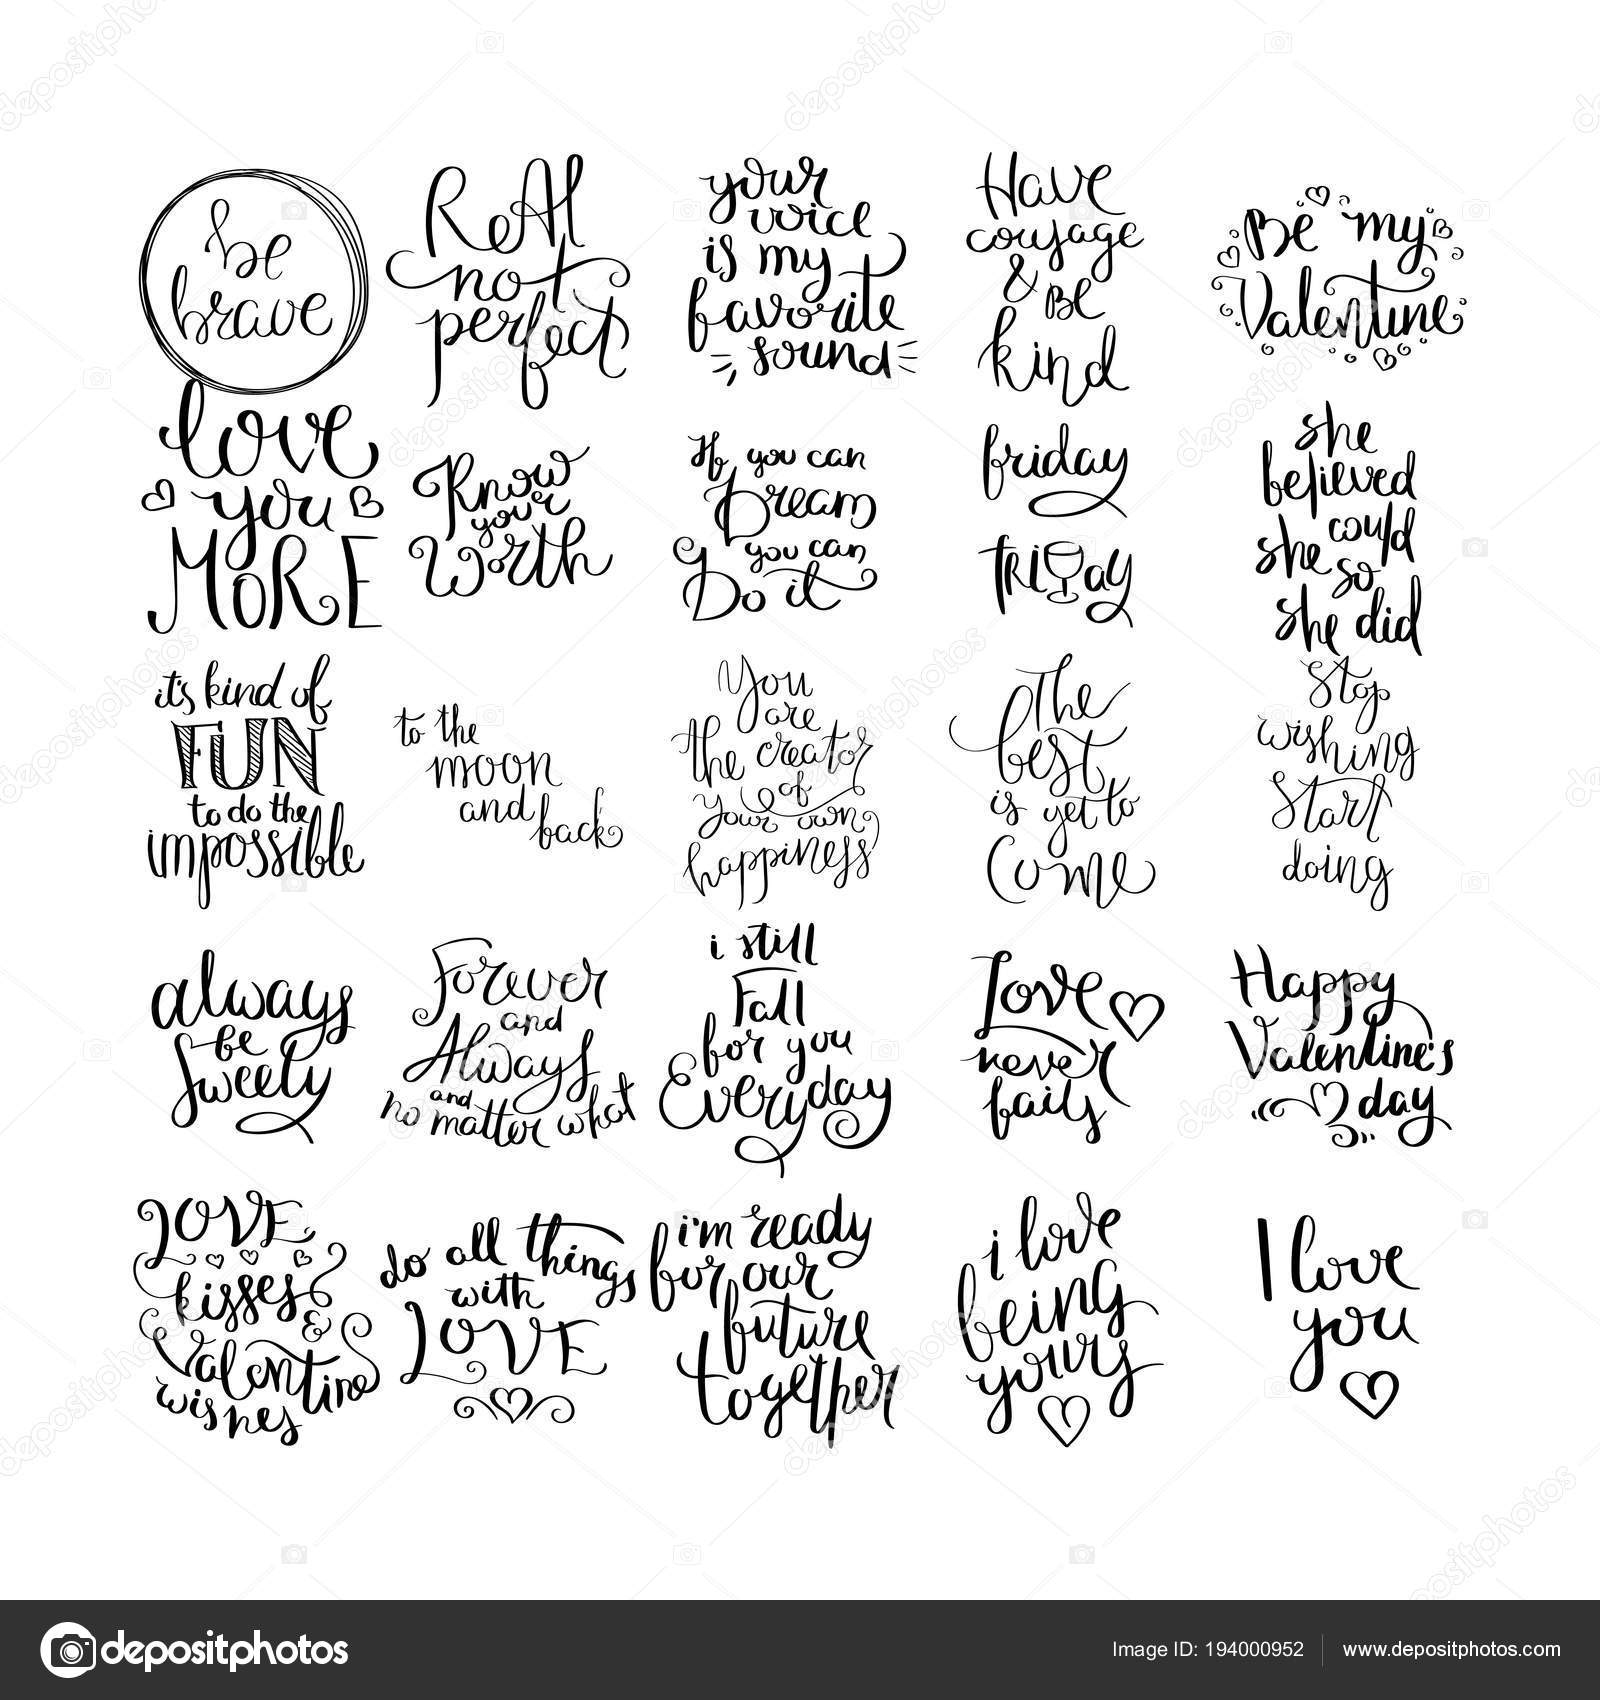 be
brave
ReAl
not
perfect
your
voice
is my
favorite
sound
Have
courage
& Be
kind
Be my
Valentine
love
you
MORE
Know
your
Worth
If you can
Dream
you can
Do it
friday
friday
she
believed
could
she so
she did
it's kind of
FUN
to do the
impossible
to the
moon
and back
You
are
the creator
of
your own
happiness
The
best
is yet to
Come
Stop
wishing
Start
doing
always
be
Sweety
Forever
and
Always
and
no matter what
i still
Fall
for you
Everyday
Love
never
fails
Happy
Valentine's
day
LOVE
kisses
&
Valentine
wishes
do all things
with
LOVE
i'm ready
for our
future
together
i love
being
yours
I love
you
depositphotos
Image ID: 194000952
www.depositphotos.com